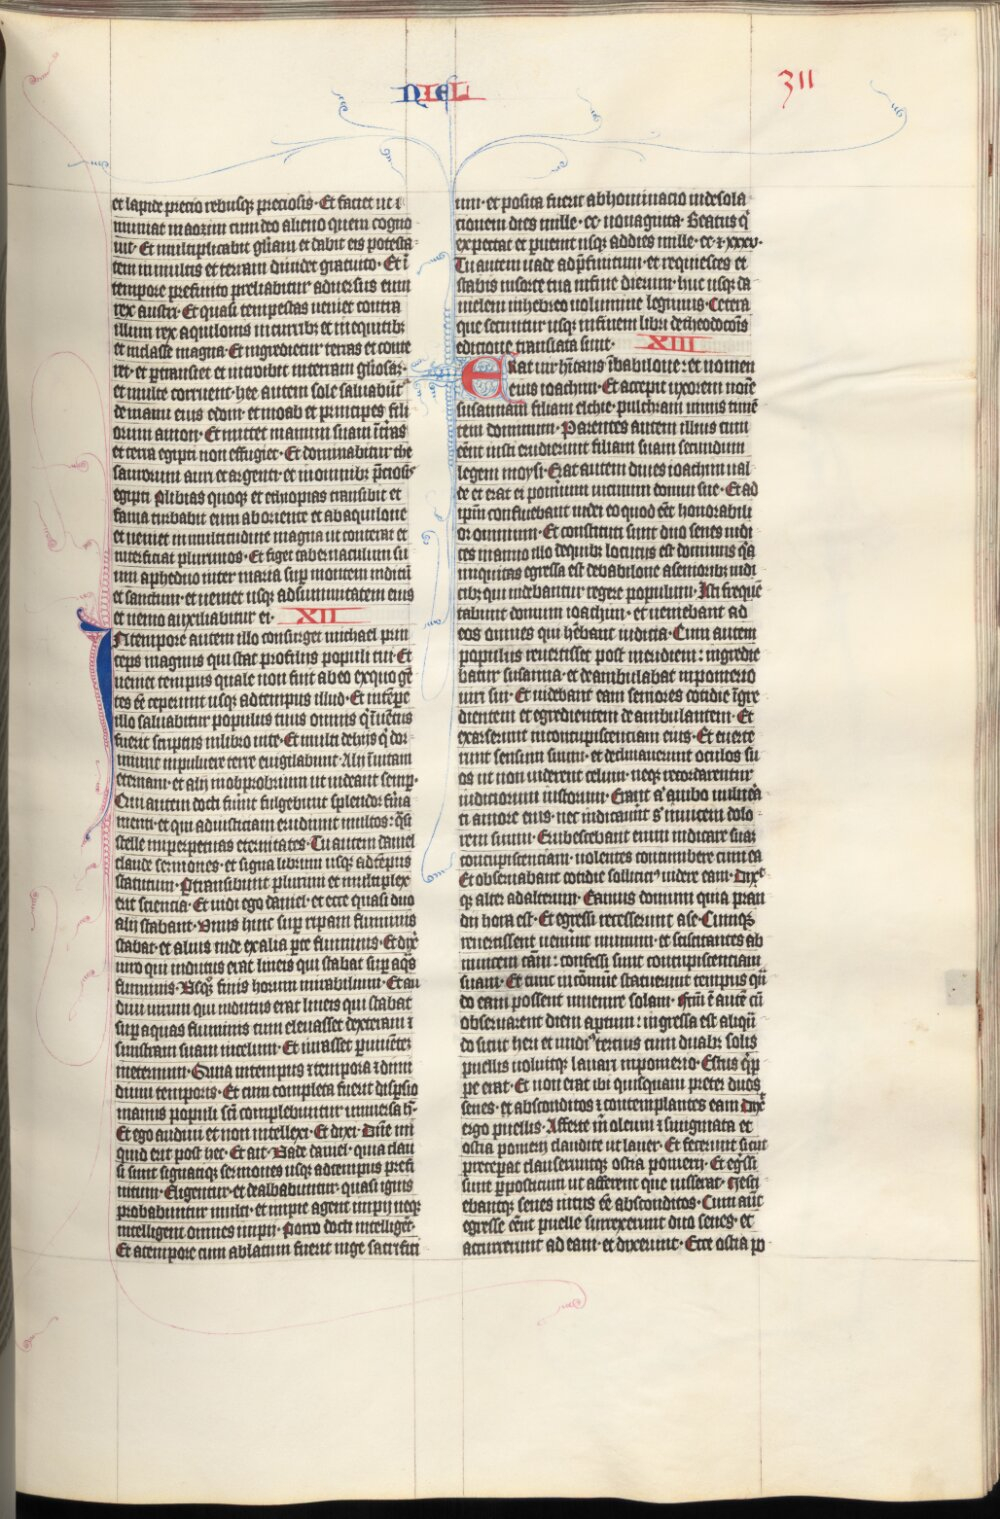 NIEL
311
et lapide precio rebusqꝫ preciosis· Et faciet ut ı
muniat maozim cum deo alieno quem cogno
uit· Et multiplicabit gl̄iam et dabit eis potesta
tem in multis et terram diuidet gratuito· Et ī
tempore prefinito preliabitur aduersus eum
rex austri· Et quasi tempestas ueniet contra
illum rex aquilonis in curribꝫ et in equitibꝫ
et in classe magna· Et ingredietur terras et conte
ret· et ꝑtransiet et introibit in terram gliosaꝫ·
et multe corruent· hee autem sole saluabūt̄
de manu eius edom· et moab et principes fili
orum amon· Et mittet manum suam ī tr̄as
et terra egipti non effugiet· Et dominabitur the
saurorum auri et argenti· et in omnibꝫ p̄ciosis
egipti P libias quoqꝫ et ethiopias transibit et
fama turbabit eum ab oriente et ab aquilone
et ueniet in multitudine magna ut conterat et
interficiat plurimos· Et figet tabernaculum su
um aphedno inter maria suꝑ montem inclitū
et sanctum· et ueniet usqꝫ ad summitatem eius
et nemo auxiliabitur ei· XII
IN tempore autem illo consurget michael prin
ceps magnus qui stat pro filiis populi tui· Et
ueniet tempus quale non fuit ab eo ex quo gē
tes eē ceperunt usqꝫ ad tempus illud· Et in tēpe
illo saluabitur populus tuus omnis q̄ īuētus
fuerit scriptus in libro uite· Et multi de hijs q̄ dor
miunt in puluere terre euigilabunt· Alij ī uitam
eternam· et alij in obprobrium ut uideant semꝑ·
Qui autem docti fuīnt fulgebunt splendor firma
menti· et qui ad iusticiam erudiunt multos: q̄si
stelle in perpetuas eternitates· Tu autem daniel
claude sermones· et signa librum usqꝫ ad tēpus
statutum· Ꝑtransibunt plurimi et multiplex
erit sciencia· Et uidi ego daniel· et ecce quasi duo
alij stabant· Unus hinc suꝑ ripam fluminis
stabat· et alius inde ex alia ꝑte fluminis· Et dix̄
uiro qui indutus erat lineis qui stabat suꝑ aq̄s
fluminis· Usqꝫ quo finis horum mirabilium· Et au
diui uirum qui indutus erat lineis qui stabat
suꝑ aquas fluminis cum eleuasset dexteram ⁊
sinistram suam in celum· Et iurasset ꝑ uiuētē
in eternum· Quia in tempus ⁊ tempora ⁊ dimi
dium temporis· Et cum completa fuerit disp̄sio
manus populi sc̄i complebuntur uniuersa h·
Et ego audiui et non intellexi· Et dixi· Dn̄e mi
quid erit post hec· Et ait· Uade daniel· quia clau
si sunt signatiqꝫ sermones usqꝫ ad tempus prefi
nitum· Eligentur· et dealbabuntur· quasi ignis
probabuntur multi· et impie agent impij neqꝫ
intelligent omnes impij· Porro docti intelligēt·
Et a tempore cum ablatum fuerit iuge sacrifici
um· et posita fuerit abhominacio in desola
cionem dies mille· cc· nonaginta· Beatus q̄
expectat et ꝑuenit usqꝫ ad dies mille· ccc· ⁊ xxxv·
Tu autem uade ad p̄finitum· et requiesces et
stabis in sorte tua in fine dierum· huc usqꝫ da
nielem in hebreo uolumine legimus· Cetera
que secuntur usqꝫ in finem libri de theodocōis
edicione translata sunt· XIII
ERat uir hītans ī babilone: et nomen
eius ioachim· Et accepit uxorem noīe
susannam filiam elchie· pulchram nimis timē
tem dominum· Parentes autem illius cum
eēnt iusti erudierunt filiam suam secundum
legem moysi· Erat autem diues ioachim ual
de et erat ei pomium uicinum domui sue· Et ad
ip̄m confluebant iudei eo quod eēt honorabili
or omnium· Et constituti sunt duo senes iudi
ces in anno illo de quibꝫ locutus est dominus q̄a
iniquitas egressa est de babilone a senioribꝫ iudi
cibꝫ qui uidebantur regere populum· Isti frequē
tabant domum ioachim· et ueniebant ad
eos omnes qui hēbant iudicia· Cum autem
populus reuertisset post meridiem: ingredie
batur susanna· et deambulabat in pomerio
uiri sui· Et uidebant eam seniores cotidie īgre
dientem et egredientem deambulantem· Et
exarserunt in concupiscenciam eius· Et euerte
runt sensum suum· et declinauerunt oculos su
os ut non uiderent celum· neqꝫ recordarentur
iudiciorum iustorum· Erant g̊ ambo uulnera
ti amore eius· nec indicauīt s̄ inuicem dolo
rem suum· Erubescebant enim indicare suaꝫ
concupiscenciam· uolentes concumbere cum ea
Et obseruabant cotidie sollicitiꝰ uidere eam· Dixᵗ
qꝫ alter ad alterum· Eamus domum quia pran
dij hora est· Et egressi recesserunt a se· Cumqꝫ
reuertissent uenīnt in unum· et sciscitantes ab
inuicem cām: confessi sunt concupiscenciam
suam· Et tunc in cōmūe statuerunt tempus qn̄
do eam possent inuenire solam· Fcm̄ ē autē cū
obseruarent diem aptum: ingressa est aliqn̄
do sicut heri et nudiꝰtercius cum duabꝫ solis
puellis uoluitqꝫ lauari in pomerio· Estus q̄p
pe erat· Et non erat ibi quisquam preter duos
senes· et absconditos ⁊ contemplantes eam Dix̄
ergo puellis· Afferte m̄ oleum ⁊ smigmata et
ostia pomerij claudite ut lauer· Et fecerunt sicut
preceperat clauseruntqꝫ ostia pomerij· Et eg̃ssi
sunt ꝑ posticum ut afferrent que iusserat· Nesci
ebantqꝫ senes intus eē absconditos· Cum aūt
egresse eēnt puelle surrexerunt duo senes· et
accurrerunt ad eam· et dixerunt· Ecce ostia po